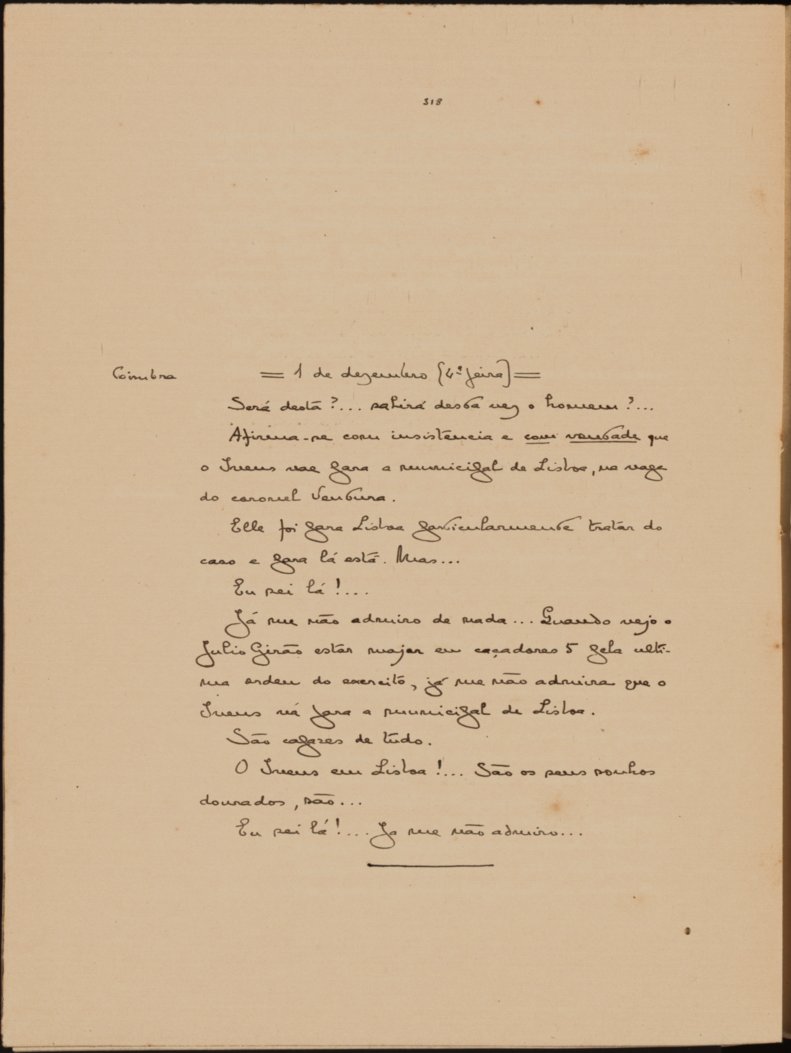 318
Coimbra = 1 de dezembro (4ª feira) =
Será desta?... sahirá desta vez o homem?...
Afirma-se com insistencia e com verdade que
o Ivens vae para a municipal de Lisboa, na vaga
do coronel Ventura.
Elle foi para Lisboa particularmente tratar do
caso e para lá está. Mas...
Eu sei lá!...
Já me não admiro de nada... Quando vejo o
Julio Girão estar major em caçadores 5 pela ulti-
ma ordem do exercito, já me não admira que o
Ivens vá para a municipal de Lisboa.
São capazes de tudo.
O Ivens em Lisboa!... São os seus sonhos
dourados, são...
Eu sei lá!... Ja me não admiro...